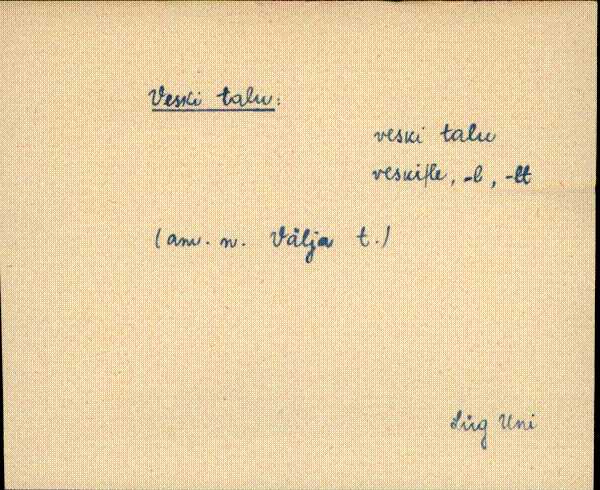 Veski talu:
veski talu
veski/le, -l, -lt
(am. n. Välja t.)
Lüg Uni